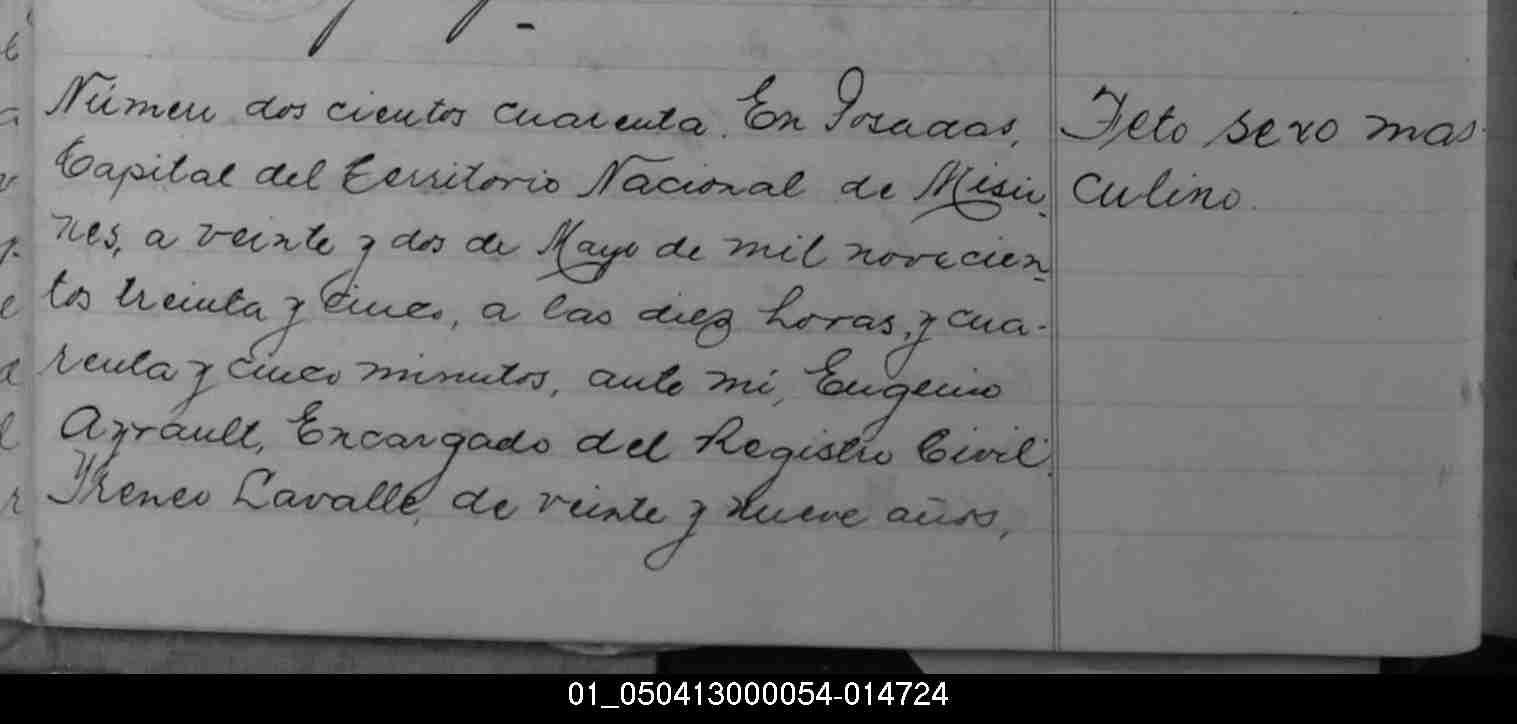 Número dos cientos cuarenta. En Posadas,
Capital del territorio Nacional de Misio-
nes, a veinte y dos de Mayo de mil novecien-
tos treinta y cinco, a las diez horas, y cua-
renta y cinco minutos, ante mi, Eugenio
Ayrault, Encargado del Registro Civil.
Yreneo Lavalle, de veinte y nueve años,
Feto sexo mas-
culino.
01_050413000054-014724